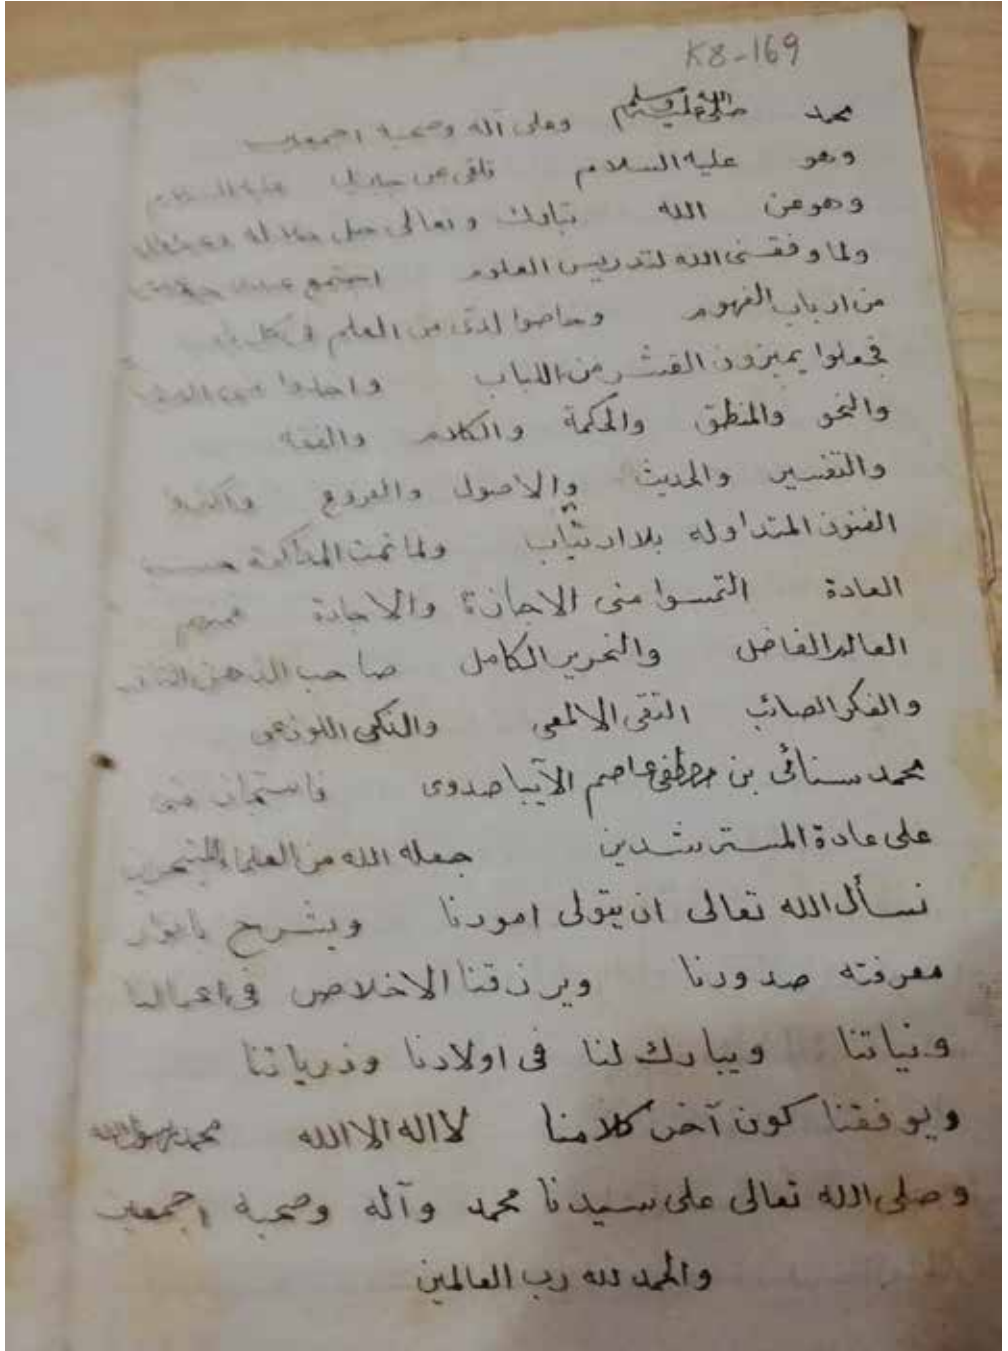 K8-169
محمد صلى الله عليه وسلم وعلى آله وصحبه اجمعين
وهو عليه السلام تلقى عن جبرائيل عليه السلام
وهو عن الله تبارك وتعالى جل جلاله
ولما وفقنى الله لتدريس العلوم اجتمع عندى
من ارباب الفهوم وخاضوا لدى من العلم فى كل
فجعلوا يميزون القشر من اللباب واخذوا
والنحو والمنطق والحكمة والكلام والفقه
والتفسير والحديث والاصول والفروع
الفنون المتداوله بلا ارتياب ولما تمت المذاكرة حسب
العادة التمسوا منى الاجازة والاجادة منهم
العالم الفاضل والنحرير الكامل صاحب الذهن الثاقب
والفكر الصائب التقى الالمعى والذكى اللوذعى
محمد سنائى بن مصطفى عاصم الآيباصدوى فاستجاز منى
على عادة المسترشدين جعله الله من العلماء المتبحرين
نسأل الله تعالى ان يتولى امورنا ويشرح بانوار
معرفته صدورنا ويرزقنا الاخلاص فى اعمالنا
ونياتنا ويبارك لنا فى اولادنا وذرياتنا
ويوفقنا كون آخر كلامنا لا اله الا الله محمد رسول الله
وصلى الله تعالى على سيدنا محمد وآله وصحبه اجمعين
والحمد لله رب العالمين